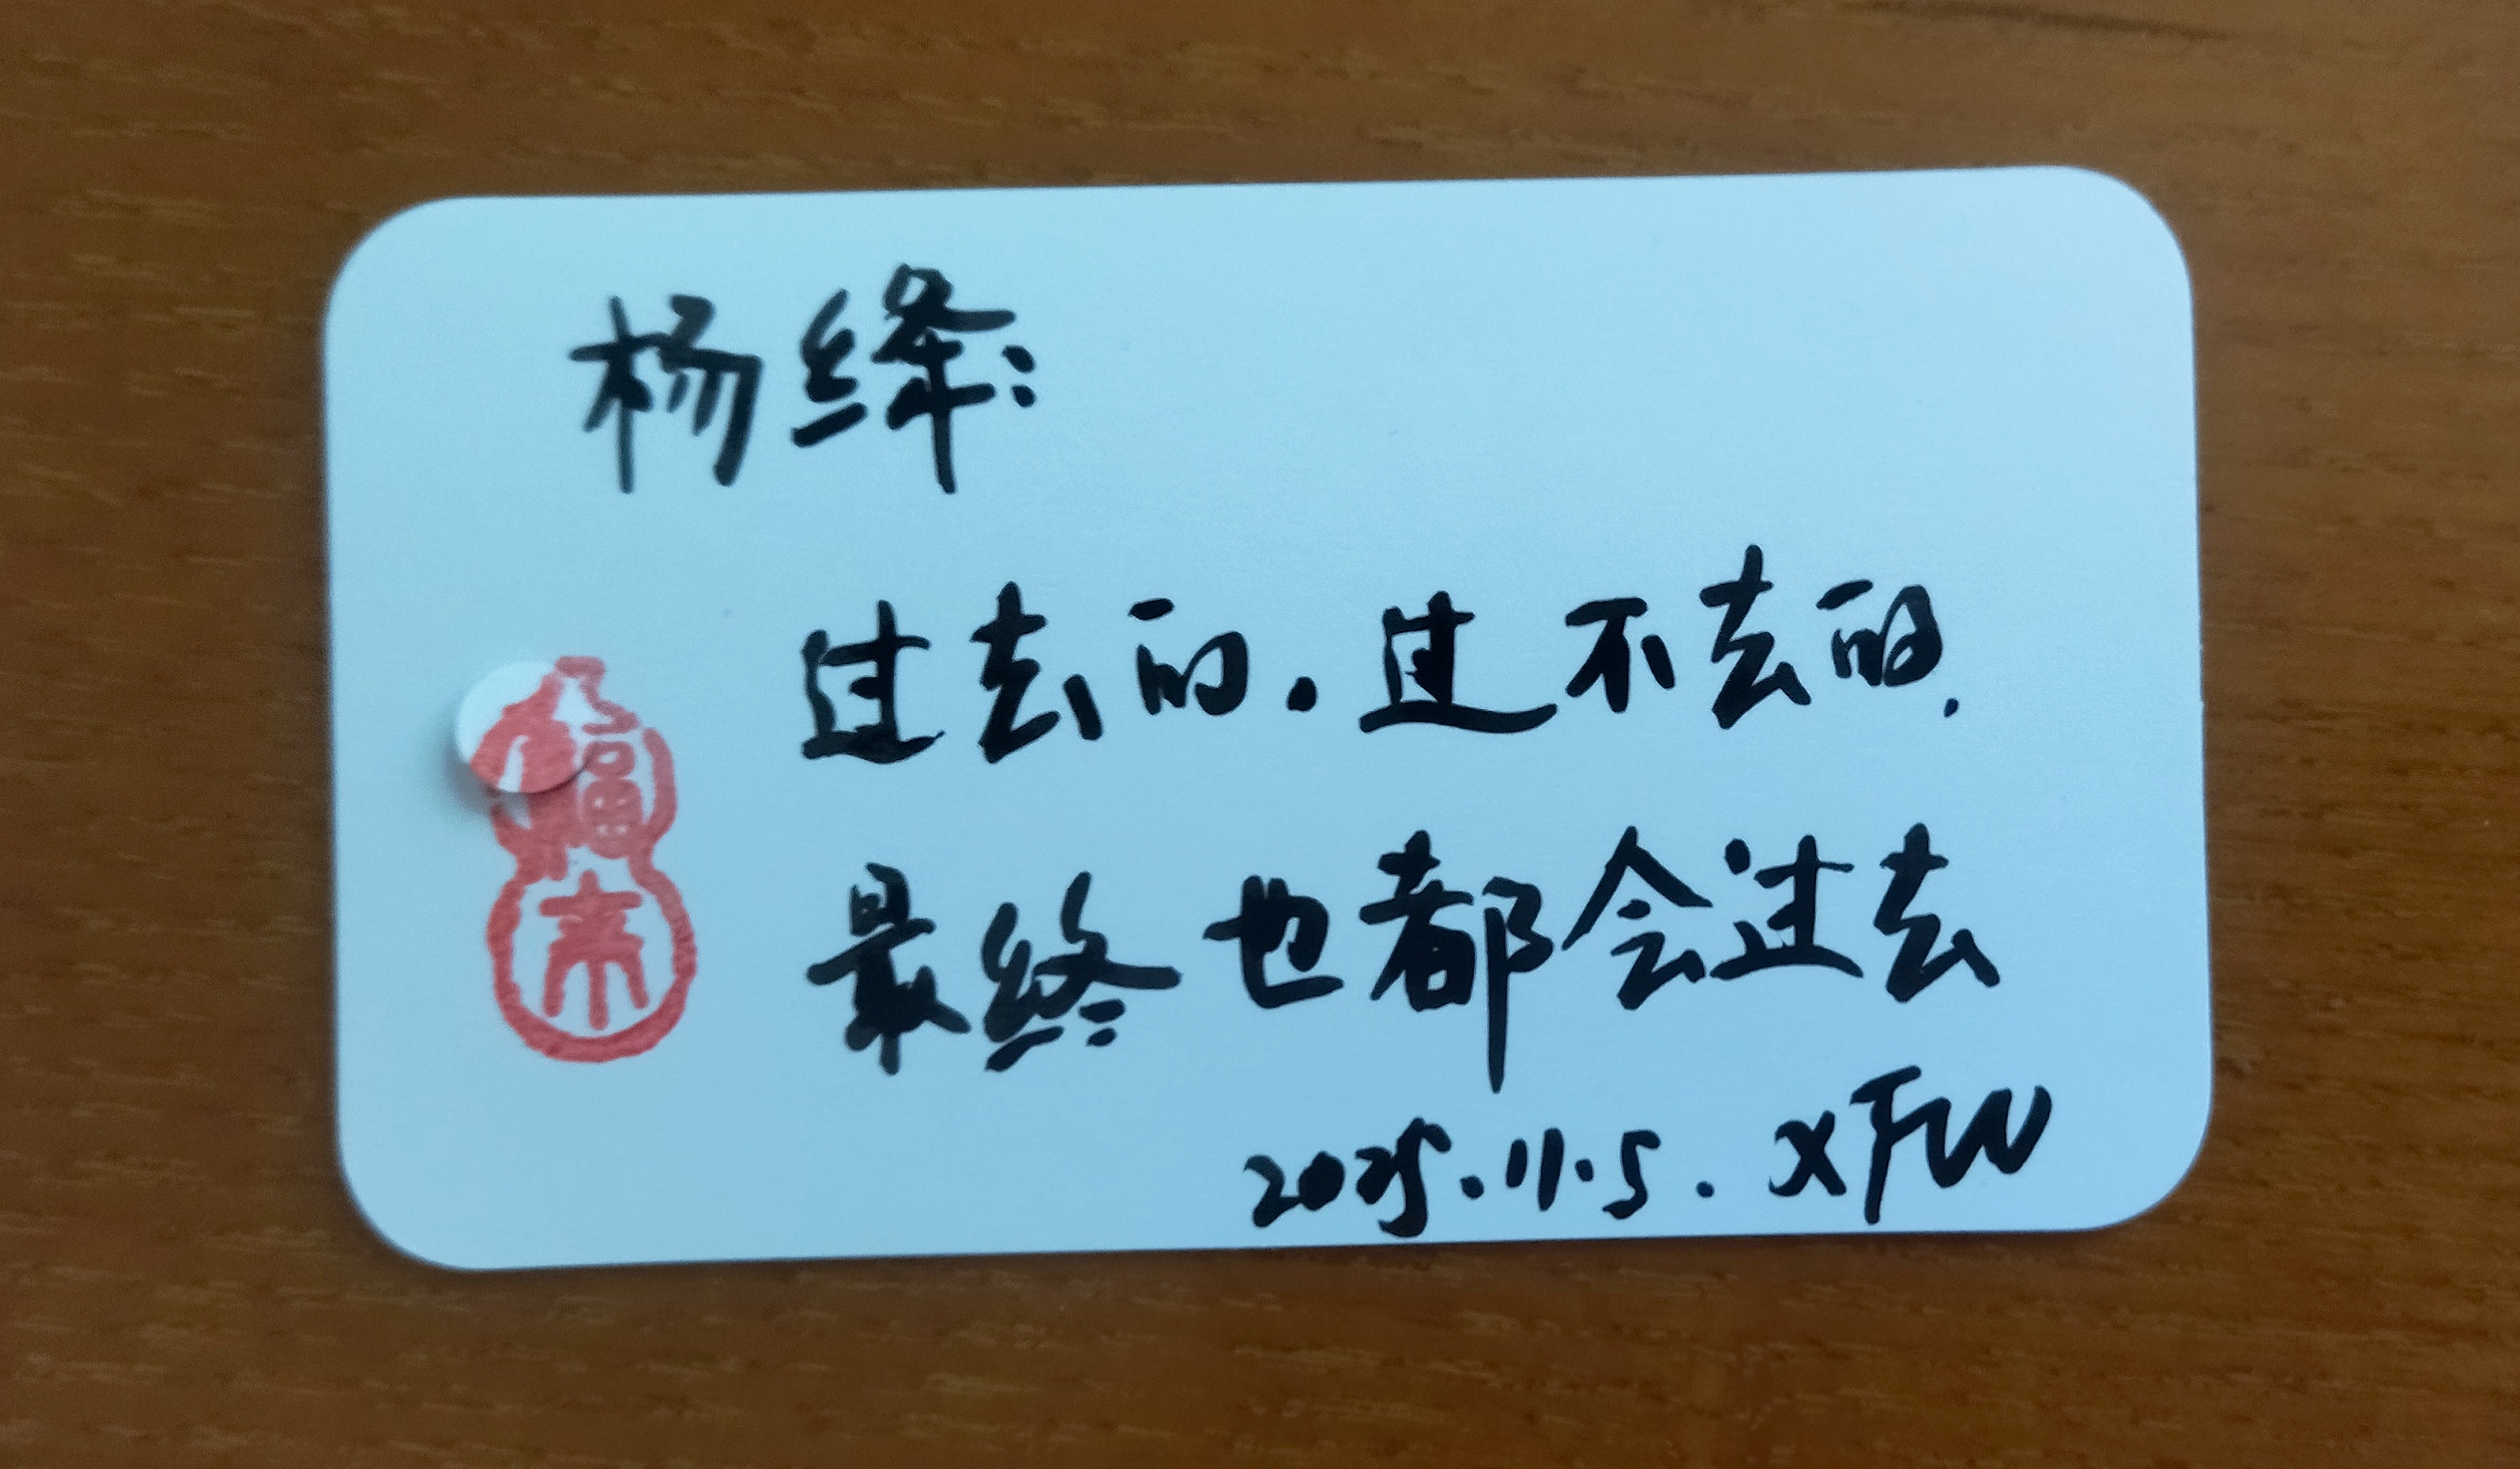 杨绛:
过去的.过不去的.
最终也都会过去
2025.11.5. XFW
福
来